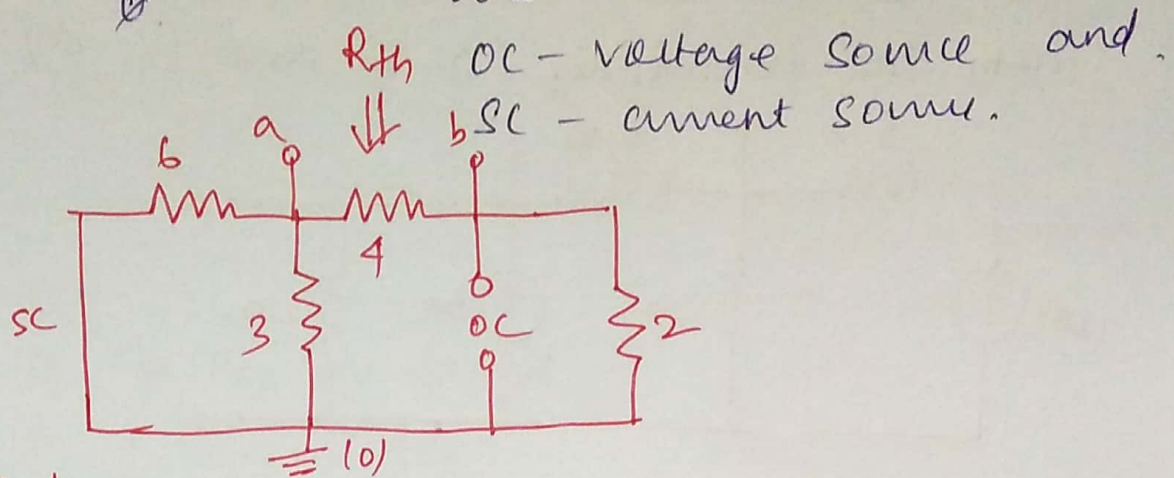 Rth OC - voltage source and.
a b SC - current source.
6
4
SC 3 OC 2
(0)